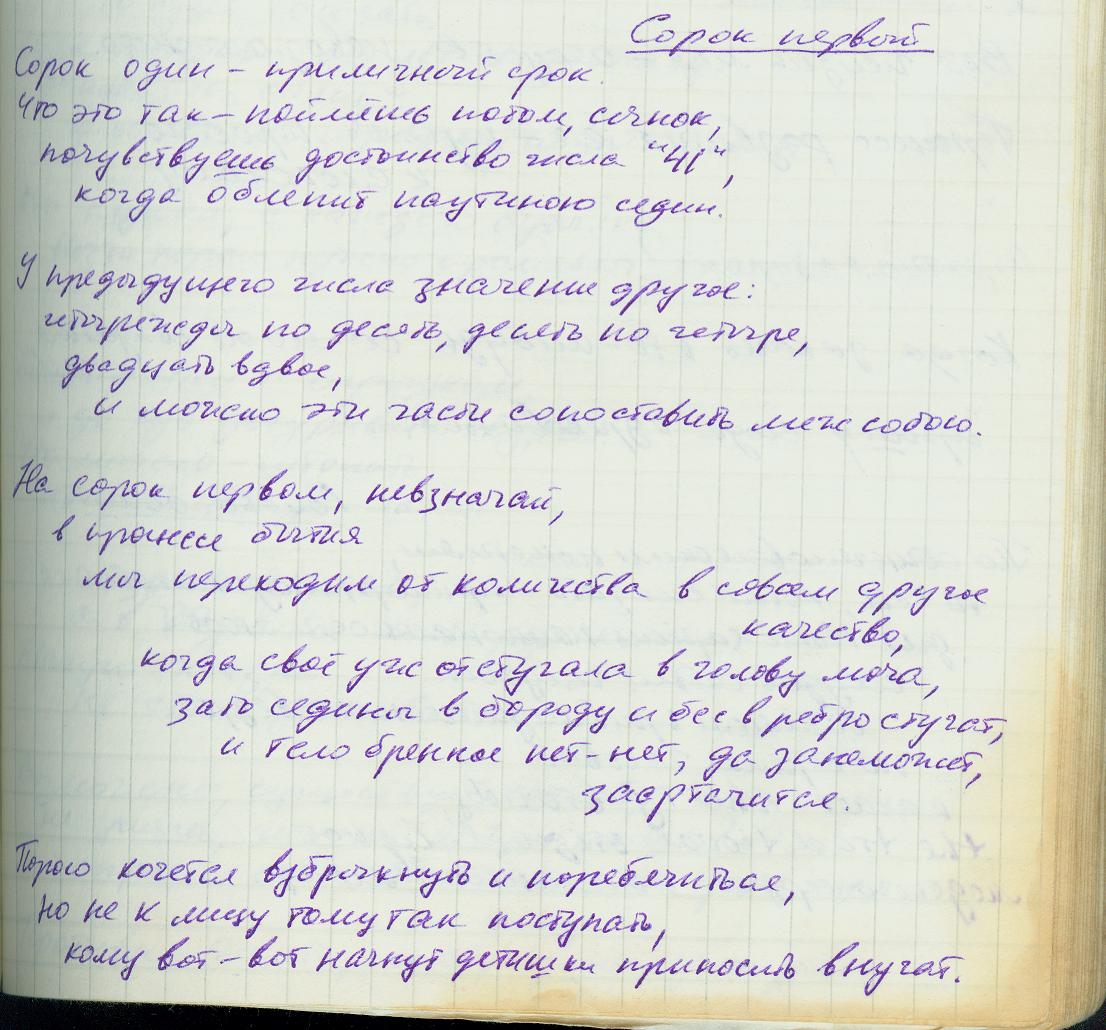 Сорок первый
Сорок один – приличный срок.
Что это так – поймёшь потом, сынок,
почувствуешь достоинство числа "41",
когда облепит паутиною седин.
У предыдущего числа значение другое:
четырежды по десять, десять по четыре,
двадцать вдвое,
и можно эти части сопоставить меж собою.
На сорок первом, невзначай,
в процессе бытия
мы переходим от количества в совсем другое
качество,
когда своё уж отстучала в голову моча,
зато седины в бороду и бес в ребро стучат,
и тело бренное нет-нет, да занеможет,
заартачится.
Порою хочется взбрыкнуть и поребячиться,
но не к лицу тому так поступать,
кому вот-вот начнут детишки приносить внучат.